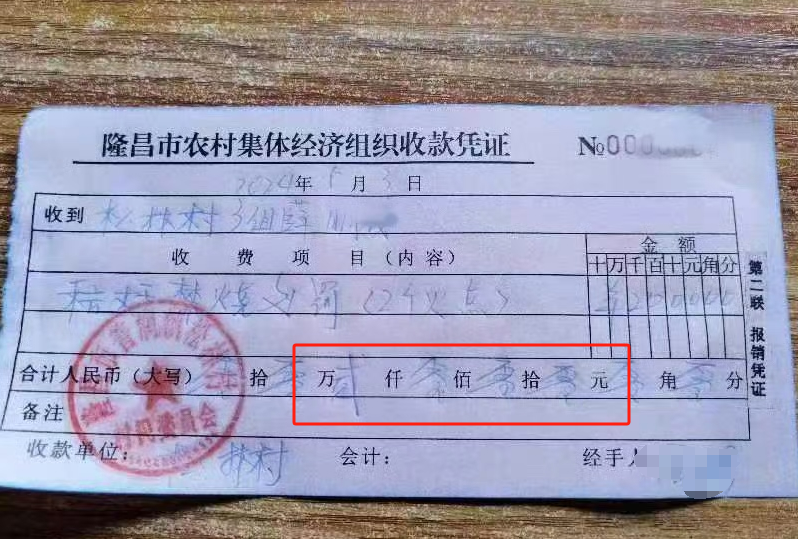 隆昌市农村集体经济组织收款凭证 №000
2024年5月3日
收到 松林村3组薛
收费项目(内容) 金额
十万千百十元角分
秸秆禁烧处罚(2个火点) ¥200000
合计人民币(大写) 零拾零万贰仟零佰零拾零元零角零分
备注
收款单位: 林村 会计: 经手人
第二联 报销凭证
村民委员会